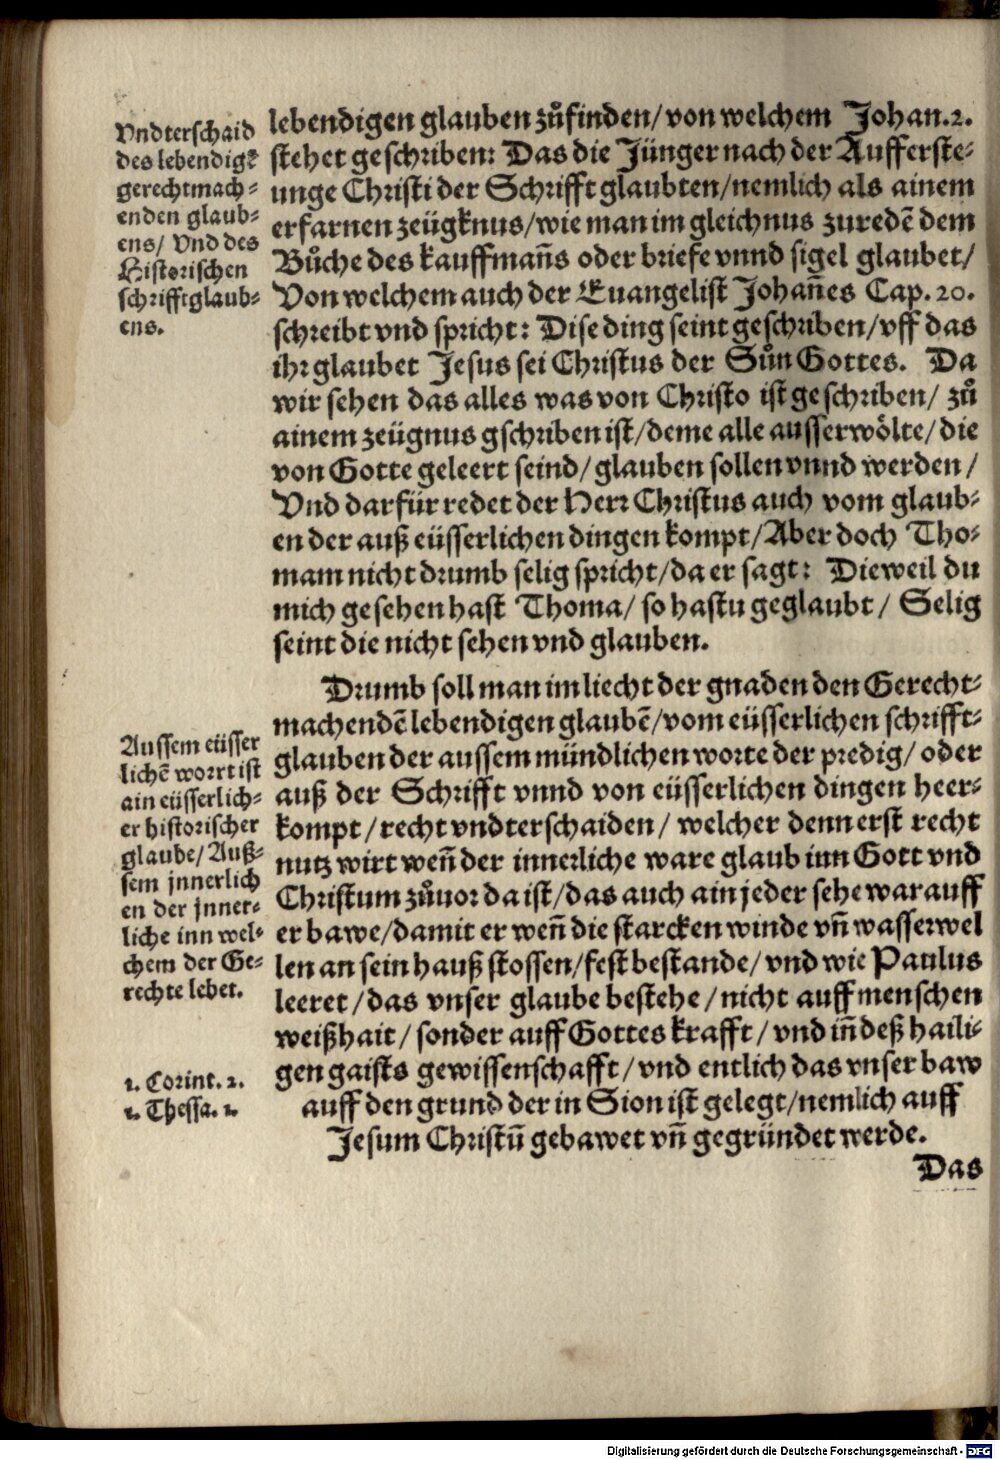 lebendigen glauben zůfinden/ von welchem Johan.2.
stehet geschriben: Das die Jünger nach der Aufferste-
unge Christi der Schrifft glaubten/ nemlich als ainem
erfarnen zeügknus/ wie man im gleichnus zuredē dem
Bůche des kauffmañs oder briefe vnnd sigel glaubet/
Von welchem auch der Euangelist Johañes Cap. 20.
schreibt vnd spricht: Dise ding seint geschriben/ vff das
ihr glaubet Jesus sei Christus der Sůn Gottes. Da
wir sehen das alles was von Christo ist geschriben/ zů
ainem zeügnus gschriben ist/ deme alle ausserwölte/ die
von Gotte geleert seind/ glauben sollen vnnd werden/
Vnd darfür redet der Herr Christus auch vom glaub-
en der auß eüsserlichen dingen kompt/ Aber doch Tho-
mam nicht drumb selig spricht/ da er sagt: Dieweil du
mich gesehen hast Thoma/ so hastu geglaubt/ Selig
seint die nicht sehen vnd glauben.
Vndterschaid
des lebendigē
gerechtmach-
enden glaub-
ens/ Vnd des
Historischen
schrifftglaub-
ens.
Drumb soll man im liecht der gnaden den Gerecht-
machendē lebendigen glaubē/ vom eüsserlichen schrifft-
glauben der aussem mündlichen worte der predig/ oder
auß der Schrifft vnnd von eüsserlichen dingen heer-
kompt/ recht vndterschaiden/ welcher denn erst recht
nutz wirt weñ der innerliche ware glaub inn Gott vnd
Christum zůuor da ist/ das auch ain jeder sehe warauff
er bawe/ damit er weñ die starcken winde vñ wasserwel
len an sein hauß stossen/ fest bestande/ vnd wie Paulus
leeret/ das vnser glaube bestehe/ nicht auff menschen
weißhait/ sonder auff Gottes krafft/ vnd iñ deß haili-
gen gaists gewissenschafft/ vnd entlich das vnser baw
auff den grund der in Sion ist gelegt/ nemlich auff
Jesum Christū gebawet vñ gegründet werde.
Aussem eüsser
lichē worrt ist
ain eüsserlich-
er historischer
glaube/ Auß-
sem jnnerlich
en der jnner-
liche inn wel-
chem der Ge-
rechte lebet.
1. Corint. 2.
1. Thessa. 1.
Das
Digitalisierung gefördert durch die Deutsche Forschungsgemeinschaft - DFG